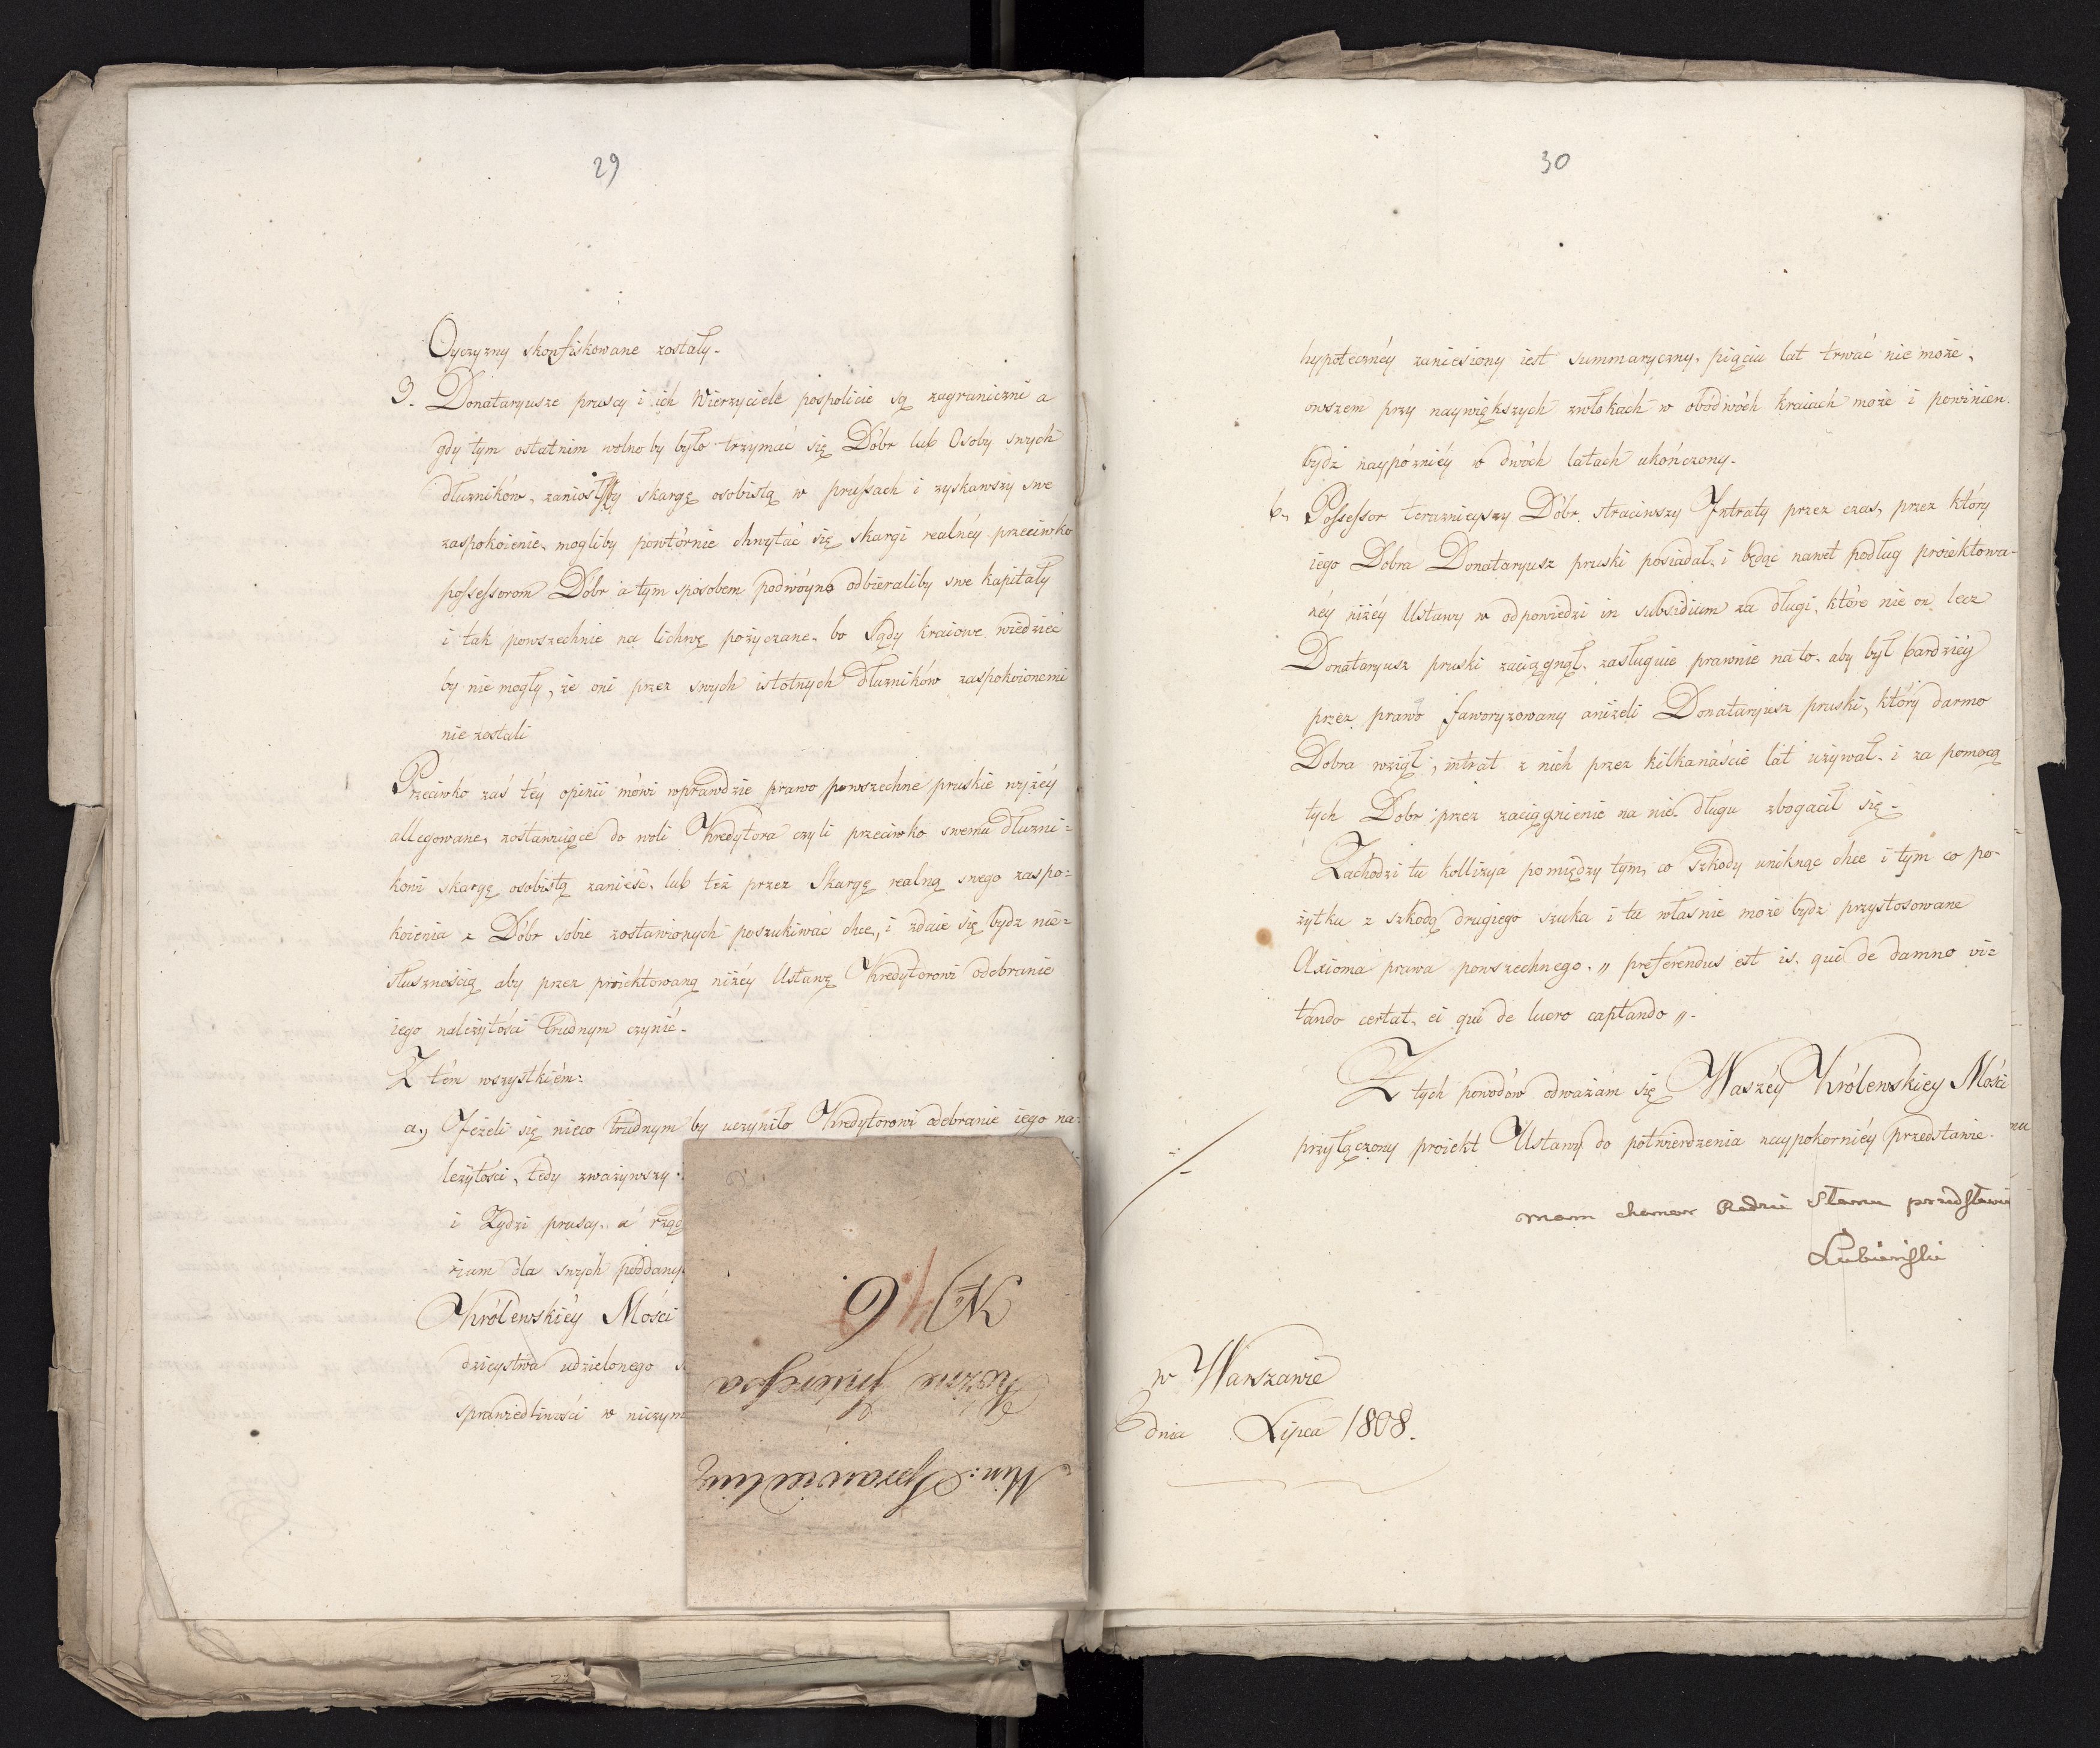 29
Oyczyzny skonfiskowane zostały.
3. Donataryusze pruscy i ich Wierzyciele pospolicie są zagraniczni a
gdy tym ostatnim wolno by było trzymać się Dóbr lub Osoby swych
dłużników, zaniosłby skargę osobistą w prussach i zyskawszy swe
zaspokoienie, mogliby powtórnie chwytać się skargi realnéy przeciwko
possessorom Dóbr a tym sposobem podwóyno odbieraliby swe kapitały
i tak powszechnie na lichwę pożyczane, bo Sądy kraiowe wiedzieć
by nie mogły, że oni przez swych istotnych Dłużników zaspokoionemi
nie zostali
Przeciwko zaś téy opinii mówi wprawdzie prawo powszechne pruskie wyżéy
allegowane, zostawuiące do woli Kredytora czyli przeciwko swemu dłużni=
kowi skargę osobistą zanieść, lub też przez Skargę realną swego zaspo=
koienia z Dóbr sobie zostawionych poszukiwać chce, i zdaie się bydz nie=
słusznością aby przez proiektowaną niżéy Ustawę Kredytorowi odebranie
iego należytości trudnym czynić.
Z tém wszystkiém:
a., Jeżeli się nieco trudnym by uczyniło Kredytorowi odebranie iego na=
leżytości, tedy zważywszy
i Żydzi pruscy, a rzą
żum dla swych poddany
Królewskiéy Mości
dzieystwa udzielonego
sprawiedliwości w niczym
Min: Sprawiedliw
Różne Interessa
N) 6.
30
hypotecznéy zaniesiony iest summaryczny, pięciu lat trwać nie może,
owszem przy naywiększych zwłokach w obódwóch kraiach może i powinien
bydz naypóźniéy w dwóch latach ukończony.
b., Possessor teraznieyszy Dóbr straciwszy Intraty przez czas, przez który
iego Dobra Donataryusz pruski posiadał, i będąc nawet podług proiektowa-
néy niżéy Ustawy w odpowiedzi in subsidium za długi, które nie on lecz
Donataryusz pruski zaciągnął, zasługuie prawnie na to, aby był bardziéy
przez prawo faworyzowany aniżeli Donataryusz pruski, który darmo
Dobra wziął, intrat z nich przez kilkanaście lat używał, i za pomocą
tych Dobr przez zaciągnienie na nie długu zbogacił się.
Zachodzi tu kollizya pomiędzy tym, co szkody uniknąc chce i tym co po-
żytku z szkodą drugiego szuka i tu własnie może bydz przystosowane
Axioma prawa powszechnego. „ preferendus est is, qui de damno vi=
tando certat, ei qui de lucro captando „.
Z tych powodów odważam się Waszéy Królewskiey Mości
przyłączony proiekt Ustawy do potwierdzenia naypokorniéy przedstawie.
mam chonor Radzie Stanu przedstawi
Lubieński
w Warszawie
dnia Lipca 1808.